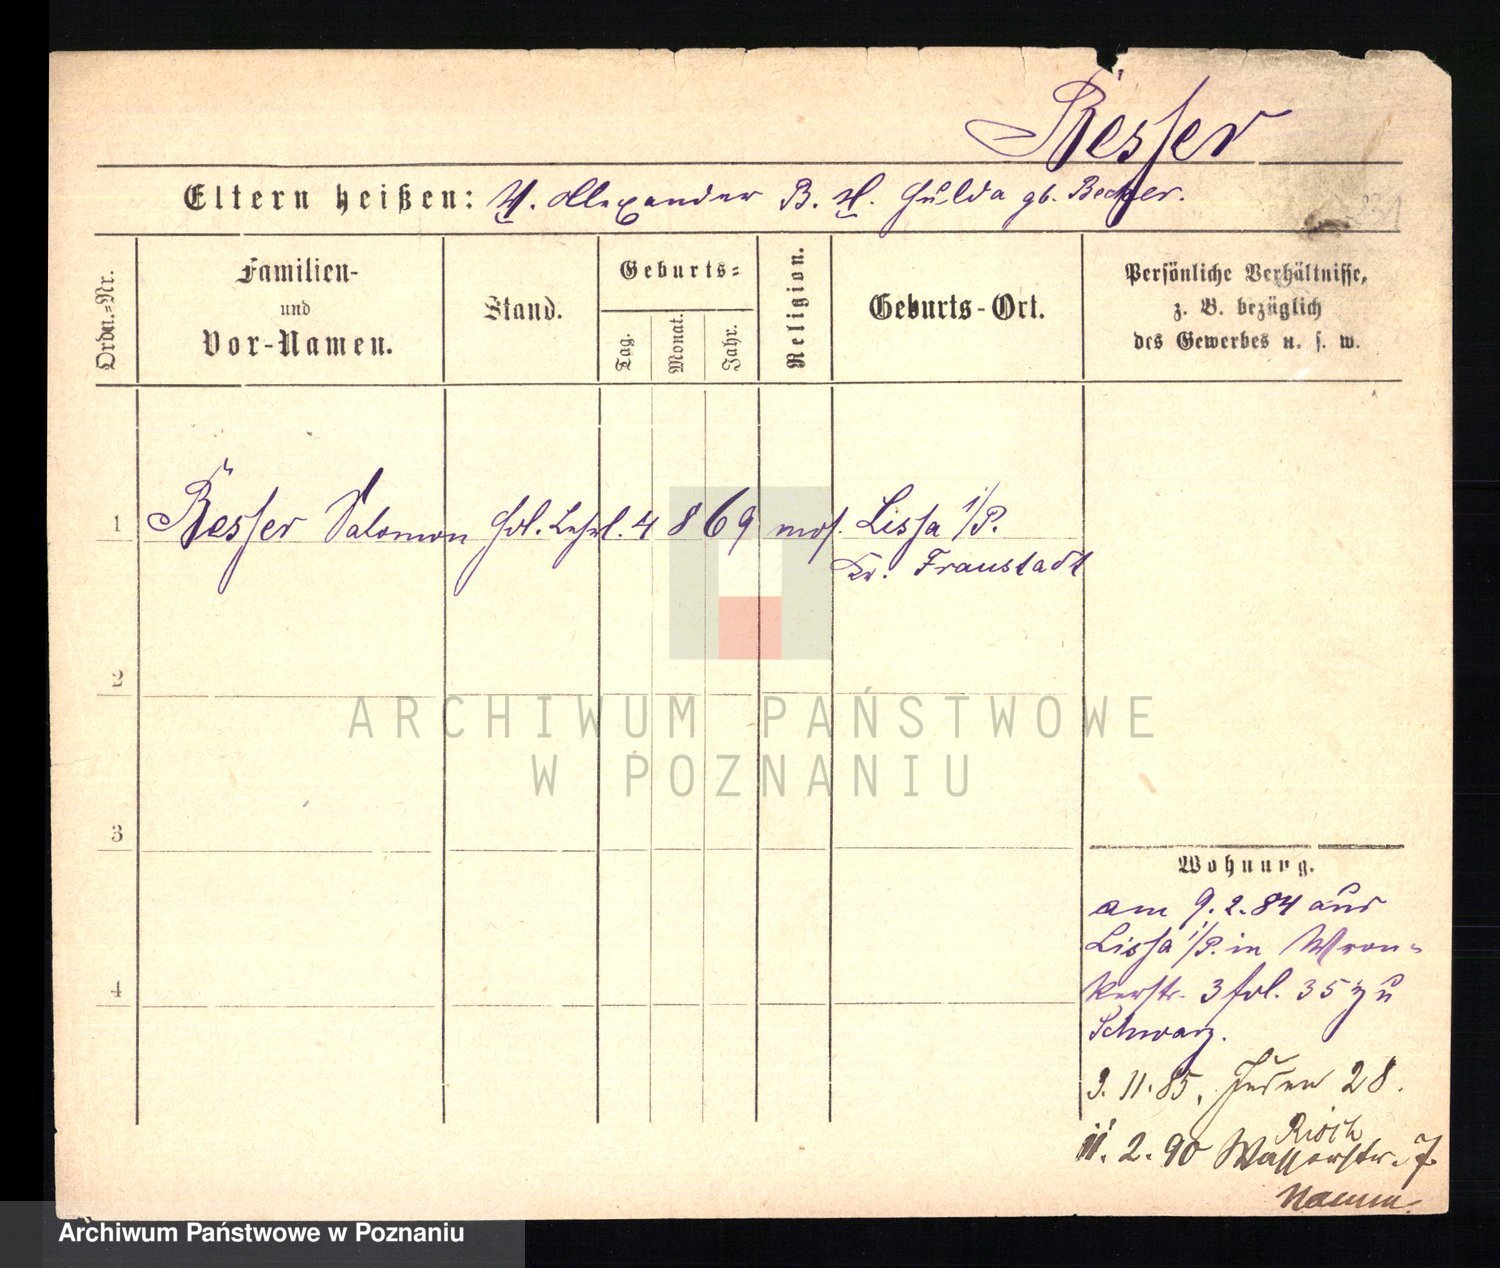 Besser
Eltern heißen: V. Alexander B. M. Hulda gb. Becker.
Ordn.=Nr.
Familien-
und
Vor-Namen.
Stand.
Geburts=
Tag.
Monat.
Jahr.
Religion.
Geburts-Ort.
Persönliche Verhältnisse,
z. B. bezüglich
des Gewerbes u. s. w.
1 Besser Salomon Hdl. Lehrl. 4 8 69 mos. Lissa i/P.
Kr. Fraustadt
2
3
4
Wohnung.
am 9.2.84 aus
Lissa i/P. in Wron-
kerstr. 3 fol. 35 zu
Schwarz.
3. 11. 85. Juden 28.
11. 2. 90 Wasserstr. 7.
ARCHIWUM PAŃSTWOWE
W POZNANIU
Archiwum Państwowe w Poznaniu